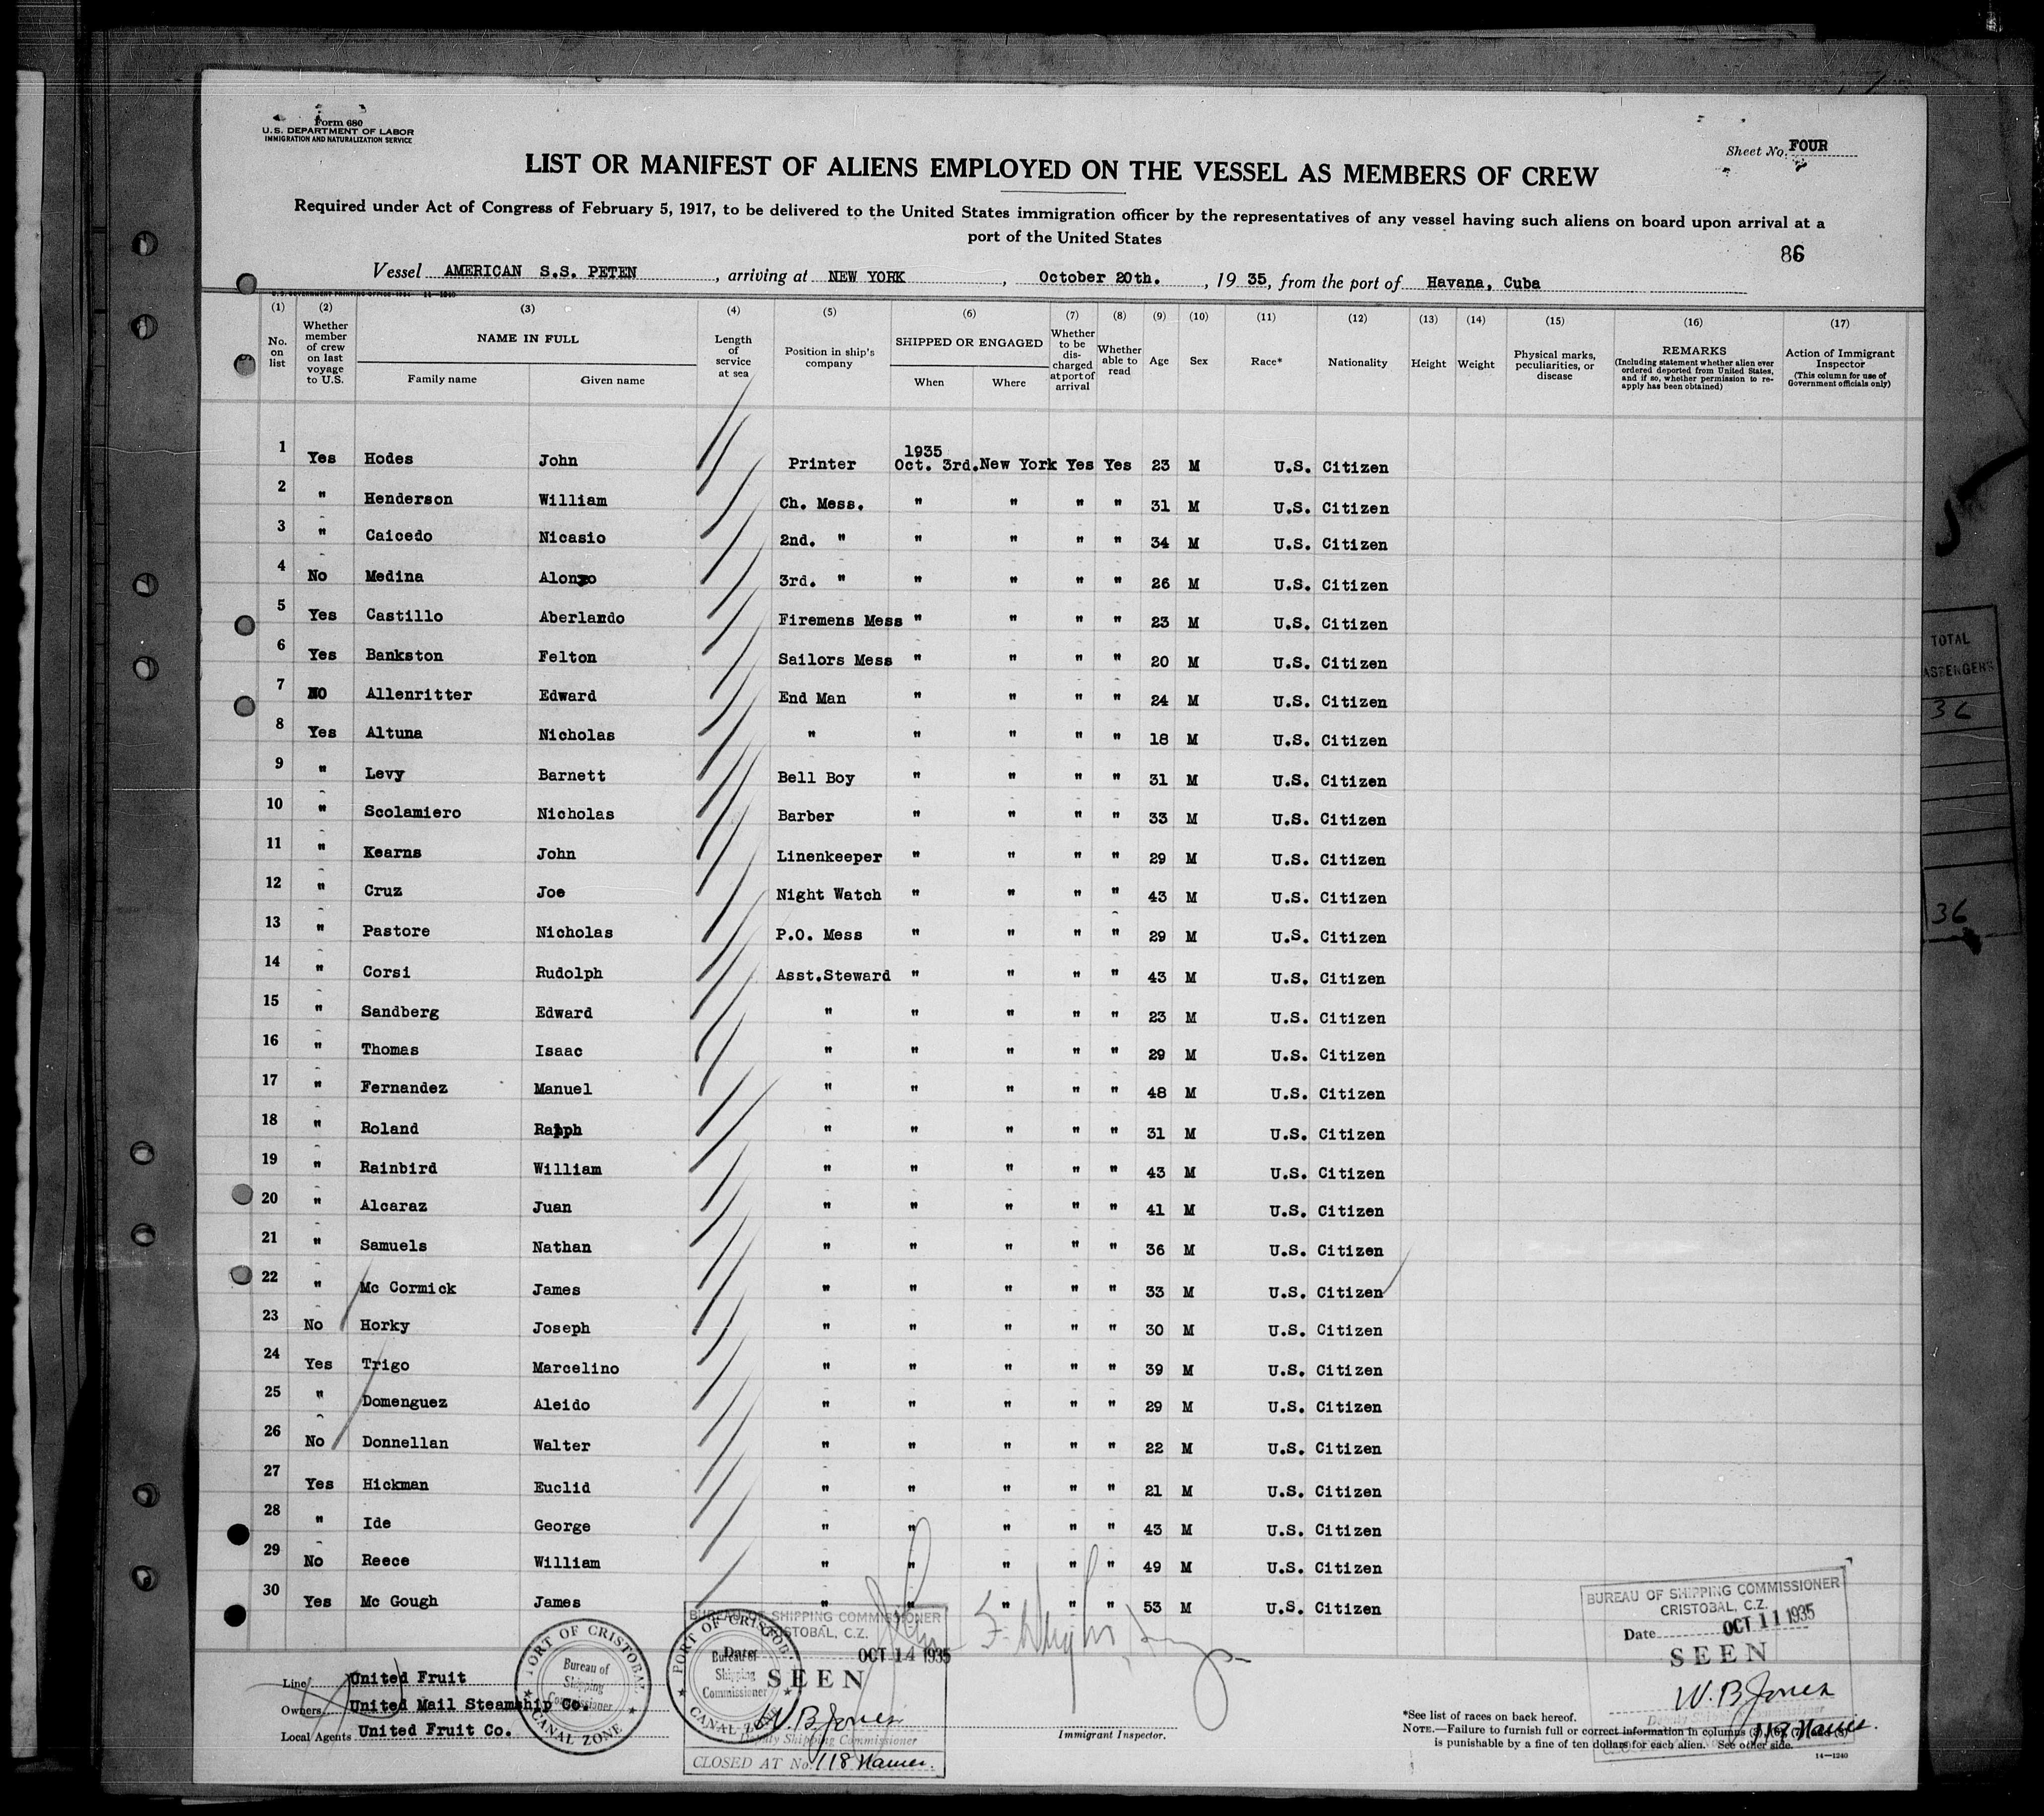 Form 680
U.S. DEPARTMENT OF LABOR
IMMIGRATION AND NATURALIZATION SERVICE
Sheet No. FOUR
LIST OR MANIFEST OF ALIENS EMPLOYED ON THE VESSEL AS MEMBERS OF CREW
Required under Act of Congress of February 5, 1917, to be delivered to the United States immigration officer by the representatives of any vessel having such aliens on board upon arrival at a
port of the United States
86
Vessel AMERICAN S.S. PETEN, arriving at NEW YORK, October 20th., 1935, from the port of Havana, Cuba
(1) No. on list (2) Whether member of crew on last voyage to U.S. (3) NAME IN FULL Family name Given name (4) Length of service at sea (5) Position in ship's company (6) SHIPPED OR ENGAGED When Where (7) Whether to be discharged at port of arrival (8) Whether able to read (9) Age (10) Sex (11) Race* (12) Nationality (13) Height (14) Weight (15) Physical marks, peculiarities, or disease (16) REMARKS (Including statement whether alien ever ordered deported from United States, and if so, whether permission to reapply has been obtained) (17) Action of Immigrant Inspector (This column for use of Government officials only)
1 Yes Hodes John Printer 1935 Oct. 3rd. New York Yes Yes 23 M U.S. Citizen
2 " Henderson William Ch. Mess. " " " " 31 M U.S. Citizen
3 " Caicedo Nicasio 2nd. " " " " " 34 M U.S. Citizen
4 No Medina Alonzo 3rd. " " " " " 26 M U.S. Citizen
5 Yes Castillo Aberlando Firemens Mess " " " " 23 M U.S. Citizen
6 Yes Bankston Felton Sailors Mess " " " " 20 M U.S. Citizen
7 NO Allenritter Edward End Man " " " " 24 M U.S. Citizen
8 Yes Altuna Nicholas " " " " " 18 M U.S. Citizen
9 " Levy Barnett Bell Boy " " " " 31 M U.S. Citizen
10 " Scolamiero Nicholas Barber " " " " 33 M U.S. Citizen
11 " Kearns John Linenkeeper " " " " 29 M U.S. Citizen
12 " Cruz Joe Night Watch " " " " 43 M U.S. Citizen
13 " Pastore Nicholas P.O. Mess " " " " 29 M U.S. Citizen
14 " Corsi Rudolph Asst.Steward " " " " 43 M U.S. Citizen
15 " Sandberg Edward " " " " " 23 M U.S. Citizen
16 " Thomas Isaac " " " " " 29 M U.S. Citizen
17 " Fernandez Manuel " " " " " 48 M U.S. Citizen
18 " Roland Ralph " " " " " 31 M U.S. Citizen
19 " Rainbird William " " " " " 43 M U.S. Citizen
20 " Alcaraz Juan " " " " " 41 M U.S. Citizen
21 " Samuels Nathan " " " " " 36 M U.S. Citizen
22 " Mc Cormick James " " " " " 33 M U.S. Citizen
23 No Horky Joseph " " " " " 30 M U.S. Citizen
24 Yes Trigo Marcelino " " " " " 39 M U.S. Citizen
25 " Domenguez Aleido " " " " " 29 M U.S. Citizen
26 No Donnellan Walter " " " " " 22 M U.S. Citizen
27 Yes Hickman Euclid " " " " " 21 M U.S. Citizen
28 " Ide George " " " " " 43 M U.S. Citizen
29 No Reece William " " " " " 49 M U.S. Citizen
30 Yes Mc Gough James " " " " " 53 M U.S. Citizen
TOTAL
PASSENGERS
36
36
Line United Fruit
Owners United Mail Steamship Co.
Local Agents United Fruit Co.
PORT OF CRISTOBAL
Bureau of Shipping Commissioner
CANAL ZONE
PORT OF CRISTOBAL
Bureau of Shipping Commissioner
CANAL ZONE
BUREAU OF SHIPPING COMMISSIONER
CRISTOBAL, C.Z.
Date OCT 14 1935
SEEN
W. B. Jones
Deputy Shipping Commissioner
CLOSED AT No. 118 Names.
Immigrant Inspector.
BUREAU OF SHIPPING COMMISSIONER
CRISTOBAL, C.Z.
Date OCT 11 1935
SEEN
W. B. Jones
Deputy Shipping Commissioner
*See list of races on back hereof.
NOTE.—Failure to furnish full or correct information in columns (3), (6), (7) and (8)
is punishable by a fine of ten dollars for each alien. See other side.
14—1240